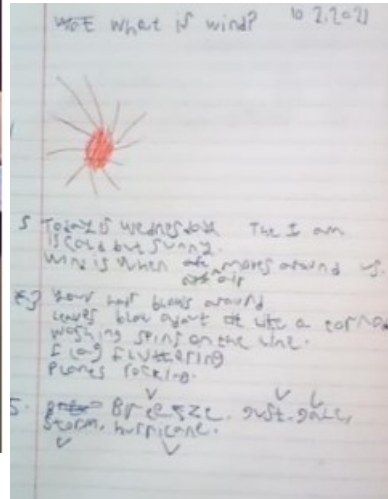 What is wind? 10.2.2021
5 Today is wednesday. The I am
is cold but sunny.
Wind is when air moves around us.
Your hair blows around
leaves blow about like a
washing spins on the line.
Flag fluttering
Planes rocking.
5. Breeze. gust. gale,
Storm, hurricane.